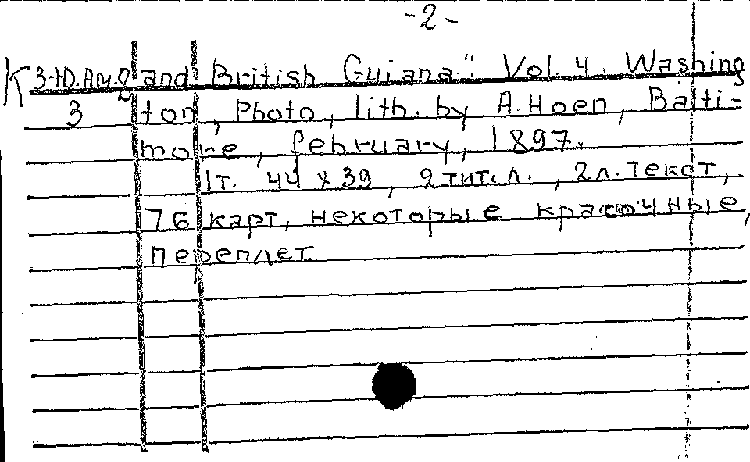 -2-
К 3-Ю.Ам.2 and British Guiana". Vol. 4. Washing
3 ton, Photo, lith. by A. Hoen, Balti-
more, february, 1897.
1т. 44 x 39, 2 тит.л., 2 л. текст,
76 карт, некоторые красочные,
переплет.